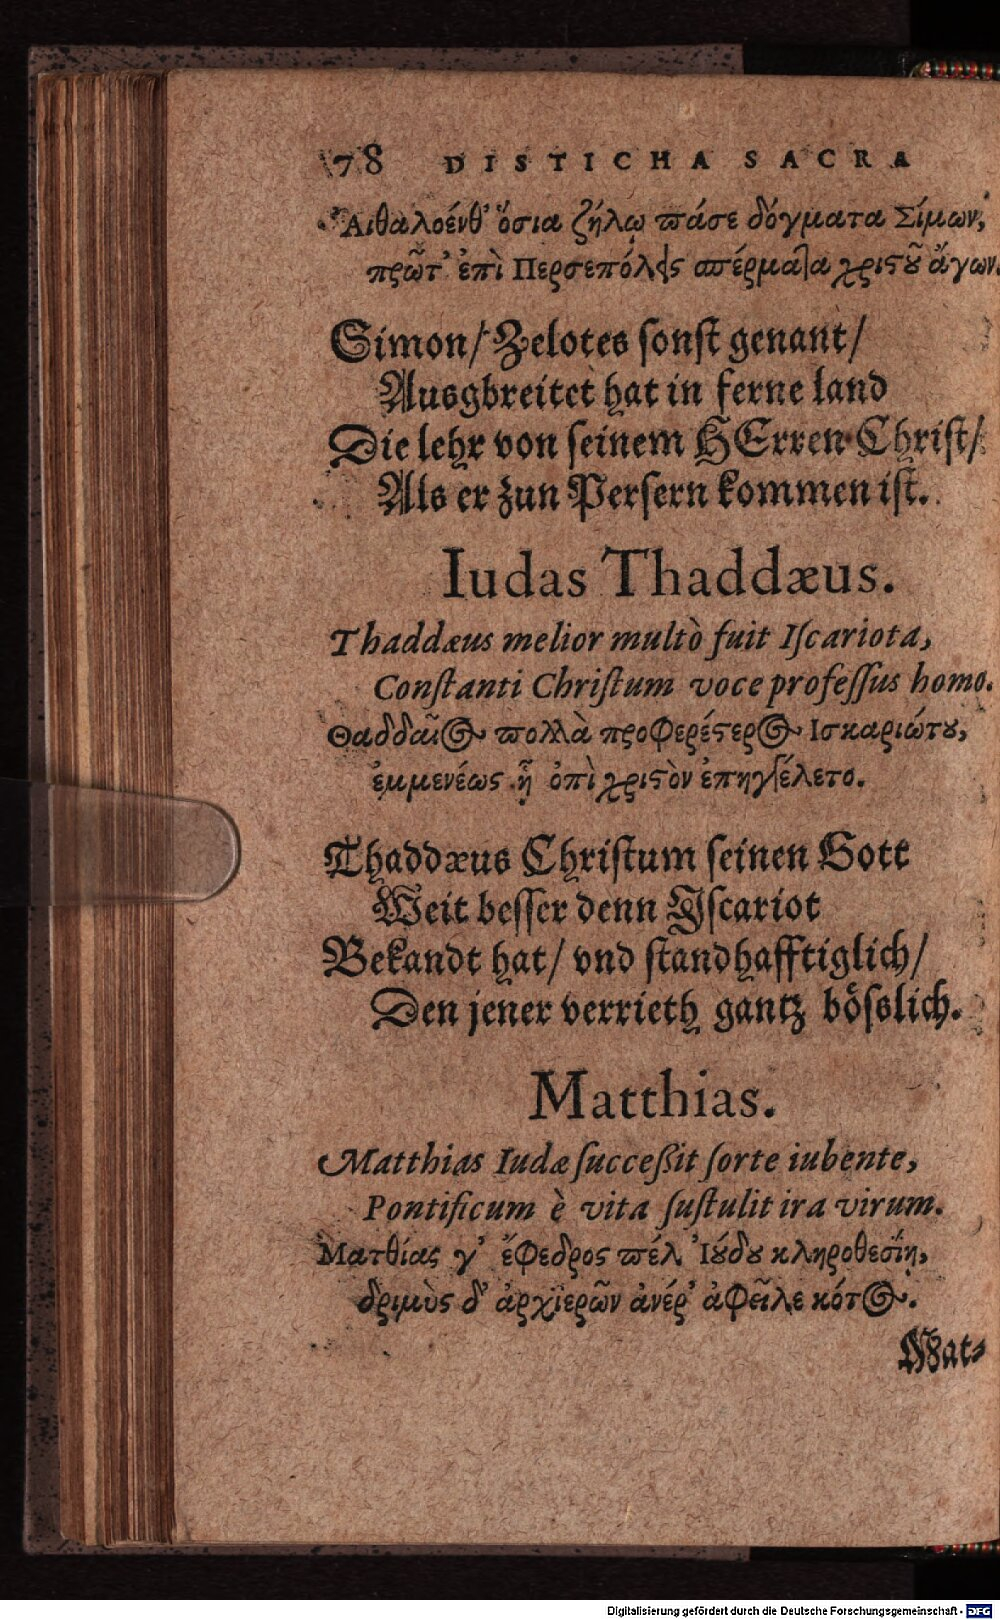 78 DISTICHA SACRA
Αἰθαλοένθ' ὅσια ζήλῳ πάσε δόγματα Σίμων,
πρῶτ' ἐπὶ Περσεπόλεις σπέρματα χριςοῦ ἄγων.
Simon/ Zelotes ſonſt genant/
Ausgbreitet hat in ferne land
Die lehr von ſeinem HErren Chriſt/
Als er zun Perſern kommen iſt.
Iudas Thaddæus.
Thaddæus melior multò fuit Iſcariota,
Conſtanti Chriſtum voce profeſſus homo.
Θαδδαῖος πολλὰ προφερέςερος Ισκαριώτου,
ἐμμενέως ᾗ ὀπὶ χριςὸν ἐπηγγέλετο.
Thaddæus Chriſtum ſeinen Gott
Weit beſſer denn Iſcariot
Bekandt hat/ vnd ſtandhafftiglich/
Den jener verrieth gantz böſslich.
Matthias.
Matthias Iudæ ſucceßit ſorte iubente,
Pontificum è vita ſuſtulit ira virum.
Ματθίας γ' ἔφεδρος πέλ' Ἰούδου κληροθεσίῃ,
δριμὺς δ' ἀρχιερῶν ἀνέρ' ἀφεῖλε κότος.
Mat⸗
Digitalisierung gefördert durch die Deutsche Forschungsgemeinschaft - DFG